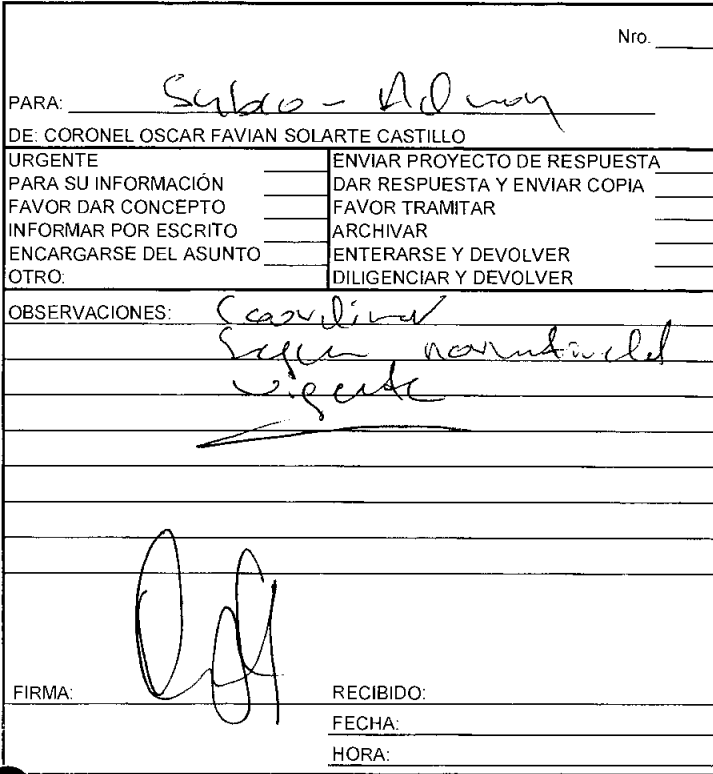 Nro.
PARA: Subco - Admon
DE: CORONEL OSCAR FAVIAN SOLARTE CASTILLO
URGENTE
PARA SU INFORMACIÓN
FAVOR DAR CONCEPTO
INFORMAR POR ESCRITO
ENCARGARSE DEL ASUNTO
OTRO:
ENVIAR PROYECTO DE RESPUESTA
DAR RESPUESTA Y ENVIAR COPIA
FAVOR TRAMITAR
ARCHIVAR
ENTERARSE Y DEVOLVER
DILIGENCIAR Y DEVOLVER
OBSERVACIONES: Coordinar
Segun normatividad
vigente
FIRMA:
RECIBIDO:
FECHA:
HORA: